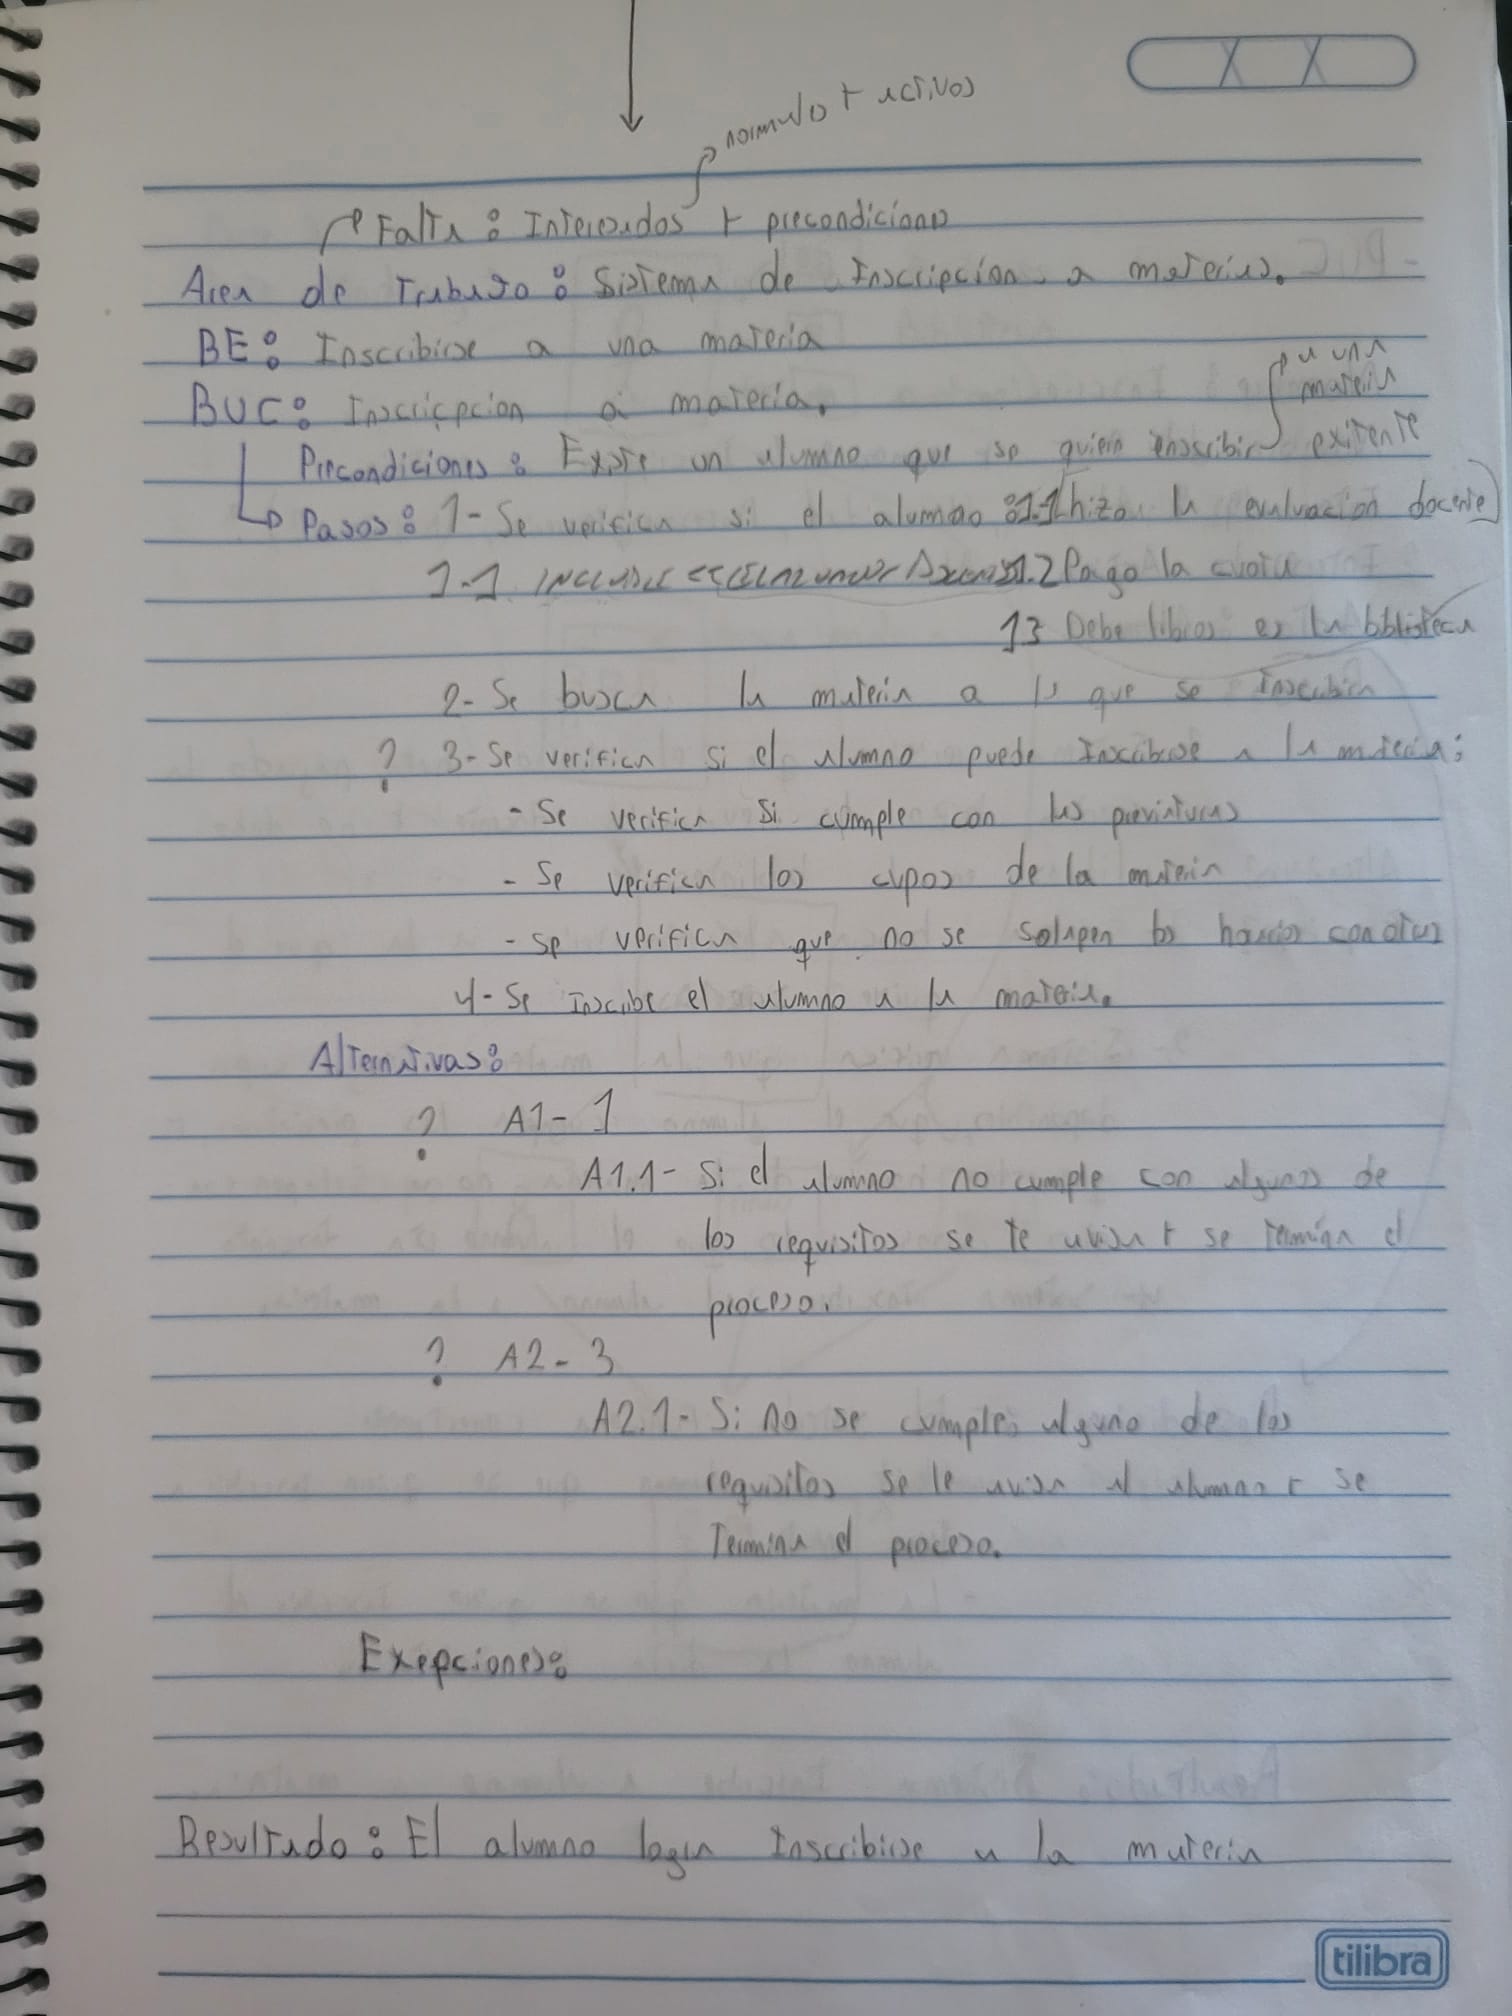 normulo + activos
Falta: Interesados + precondiciones
Area de Trabajo: Sistema de Inscripcion a materias.
BE: Inscribirse a una materia
a una
materia
BUC: Inscricpcion a materia.
Precondiciones: Existe un alumno que se quiera inscribir existente
Pasos: 1- Se verifica si el alumno: 1.1 hizo la evaluacion docente
1.1 1.2 Pago la cuota
1.3 Debe libros en la bblioteca
2- Se busca la materia a la que se Inscribira
? 3- Se verifica si el alumno puede Inscribirse a la materia:
- Se verifica si cumple con las previaturas
- Se verifica los cupos de la materia
- Se verifica que no se solapen los horarios con otras
4- Se Inscribe el alumno a la materia.
Alternativas:
? A1- 1
A1.1- Si el alumno no cumple con algunos de
los requisitos se le avisa + se termina el
proceso.
? A2- 3
A2.1- Si no se cumple alguno de los
requisitos se le avisa al alumno + se
Termina el proceso.
Exepciones:
Resultado: El alumno logra Inscribirse a la materia
tilibra